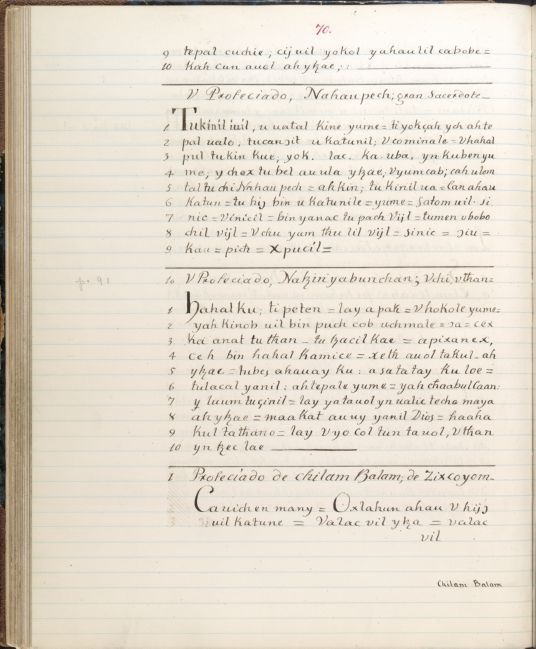 70.
9 tepal cuchie; cij uil yokol yahaulil cabobe =
10 kah cun auol ah ykae;:
V Profeciado, Nahau pech; gran Sacerdote
1 Tu kinil uil, u natal kine yume = ti yokçah ych ah te
2 pal ualo, tucanɔit u katunil; V cominale = Vhahal
3 pul tu kin kue; yok. lac. ka uba, yn kuben yu
4 me; y chex tu bel au ula ykae; Vyum cab; cah ulom
5 tal tu chi Nahau pech = ah kin; tu kinil ua = Can ahau
6 Katun = tu hiɔ bin u katunile = yume = Satom uil. si
7 nic = Vinicil = bin yanac tu pach Vijl = tumen v bobo
8 chil vijl = Vchu yum thu lil vijl = sinic = ɔiu =
9 kau = pich = Xpucil =
p. 91
10 V Profeciado, Nakin yabunchan; Vchi, vthan-
1 hahal ku; ti peten = lay a pak = V hokole yume =
2 yah kinob uil bin puch cob uchmale = ɔa = cex
3 ka anat tu than - tu kacil kae = apixanex,
4 ceh bin hahal kamice = xetk auol takul. ah
5 ykae = tubeɔ ahauay ku: a sata tay ku loe =
6 tulacal yanil: ah tepale yume = yah chaabul Caan:
7 y luum tuçinil = lay ya tauol yn ualic techo maya
8 ah ykae = maa kat auuy yanil Dios = haaha
9 kul ta thano = lay V yo col tun ta uol, V than
10 yn kec lae
1 Profeciado de chilam Balam; de Zixcoyom-
Cauich en many = Oxlahun ahau V hijɔ
uil katune = Valac vil yka = valac
vil
Chilam Balam